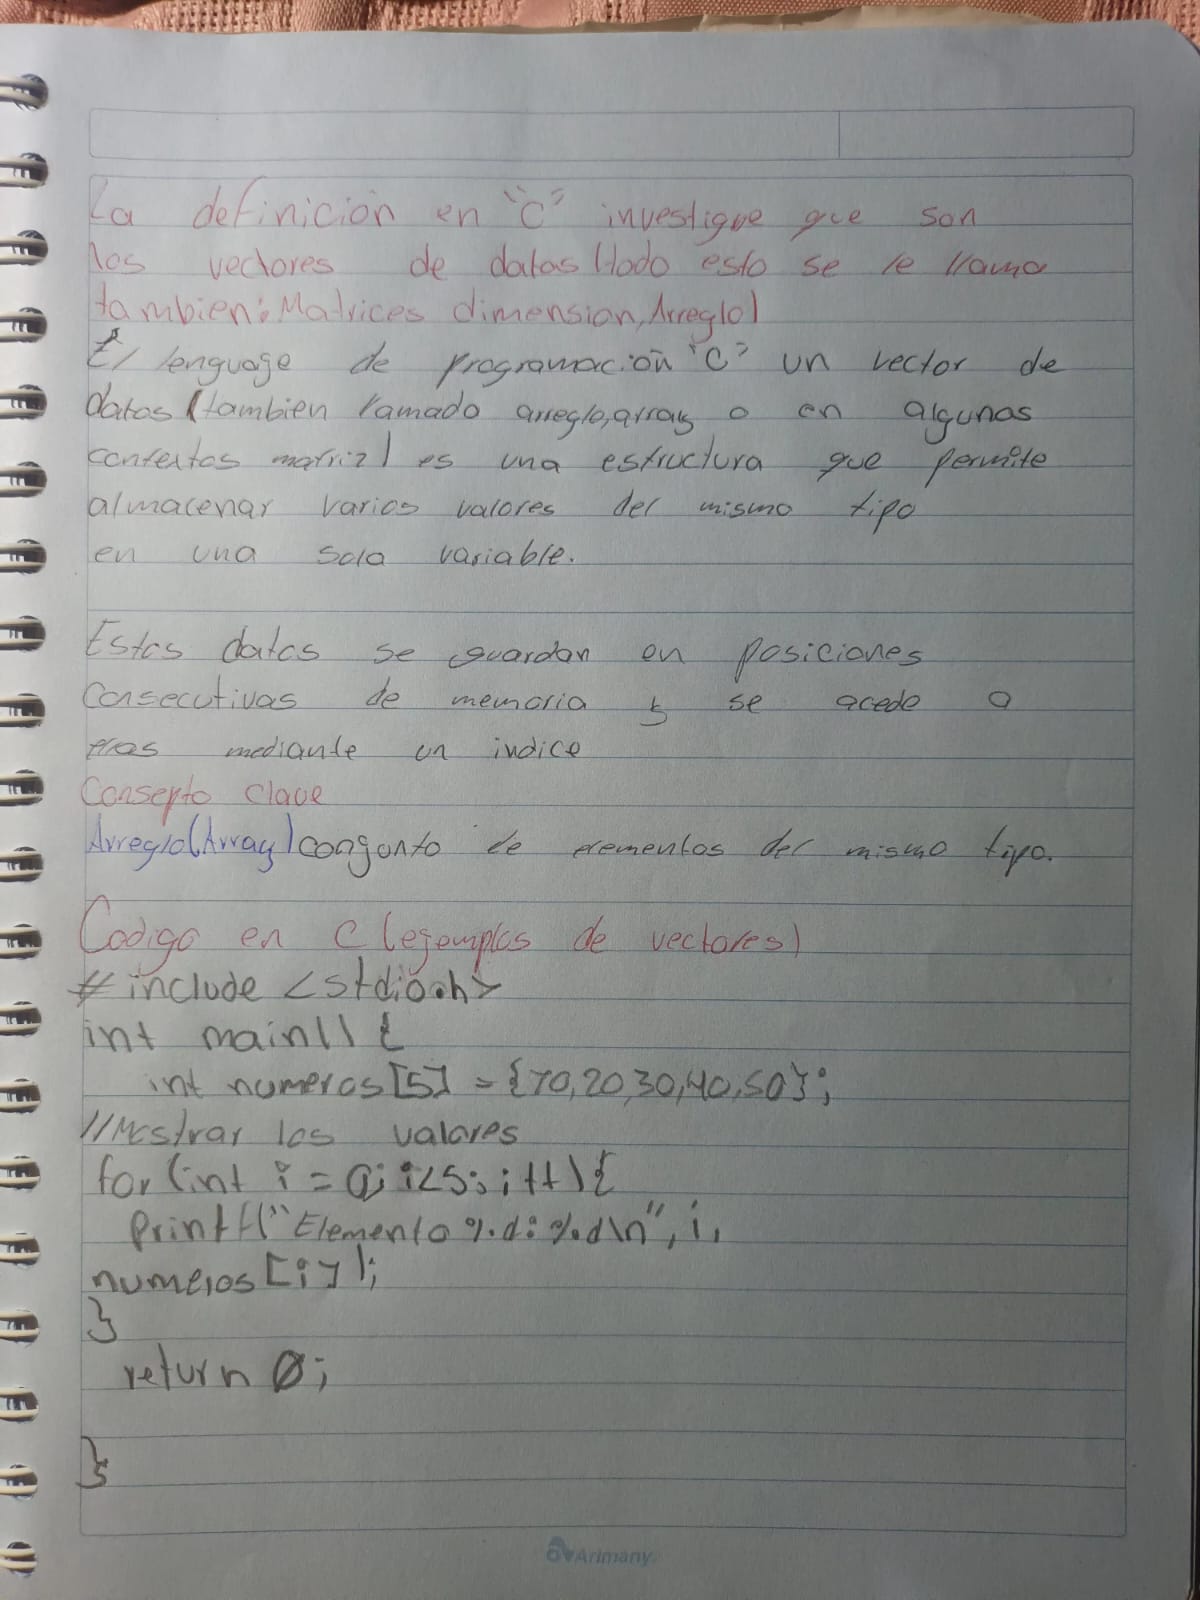 La definición en "C" investigue que son
los vectores de datos (todo esto se le llama
tambien: Matrices dimension, Arreglo)
El lenguaje de programación "C" un vector de
datos (tambien llamado arreglo, array o en algunas
contextos matriz) es una estructura que permite
almacenar varios valores del mismo tipo
en una sola variable.
Estos datos se guardan en posiciones
Consecutivas de memoria y se acede a
ellos mediante un indice
Consepto clave
Arreglo (Array) congunto de elementos del mismo tipo.
Codigo en C (ejemplos de vectores)
#include <stdio.h>
int main() {
int numeros[5] = {10,20,30,40,50};
//Mostrar los valores
for (int i = 0; i<5; i++) {
printf("Elemento %d: %d\n", i,
numeros[i]);
}
return 0;
}
Arimany